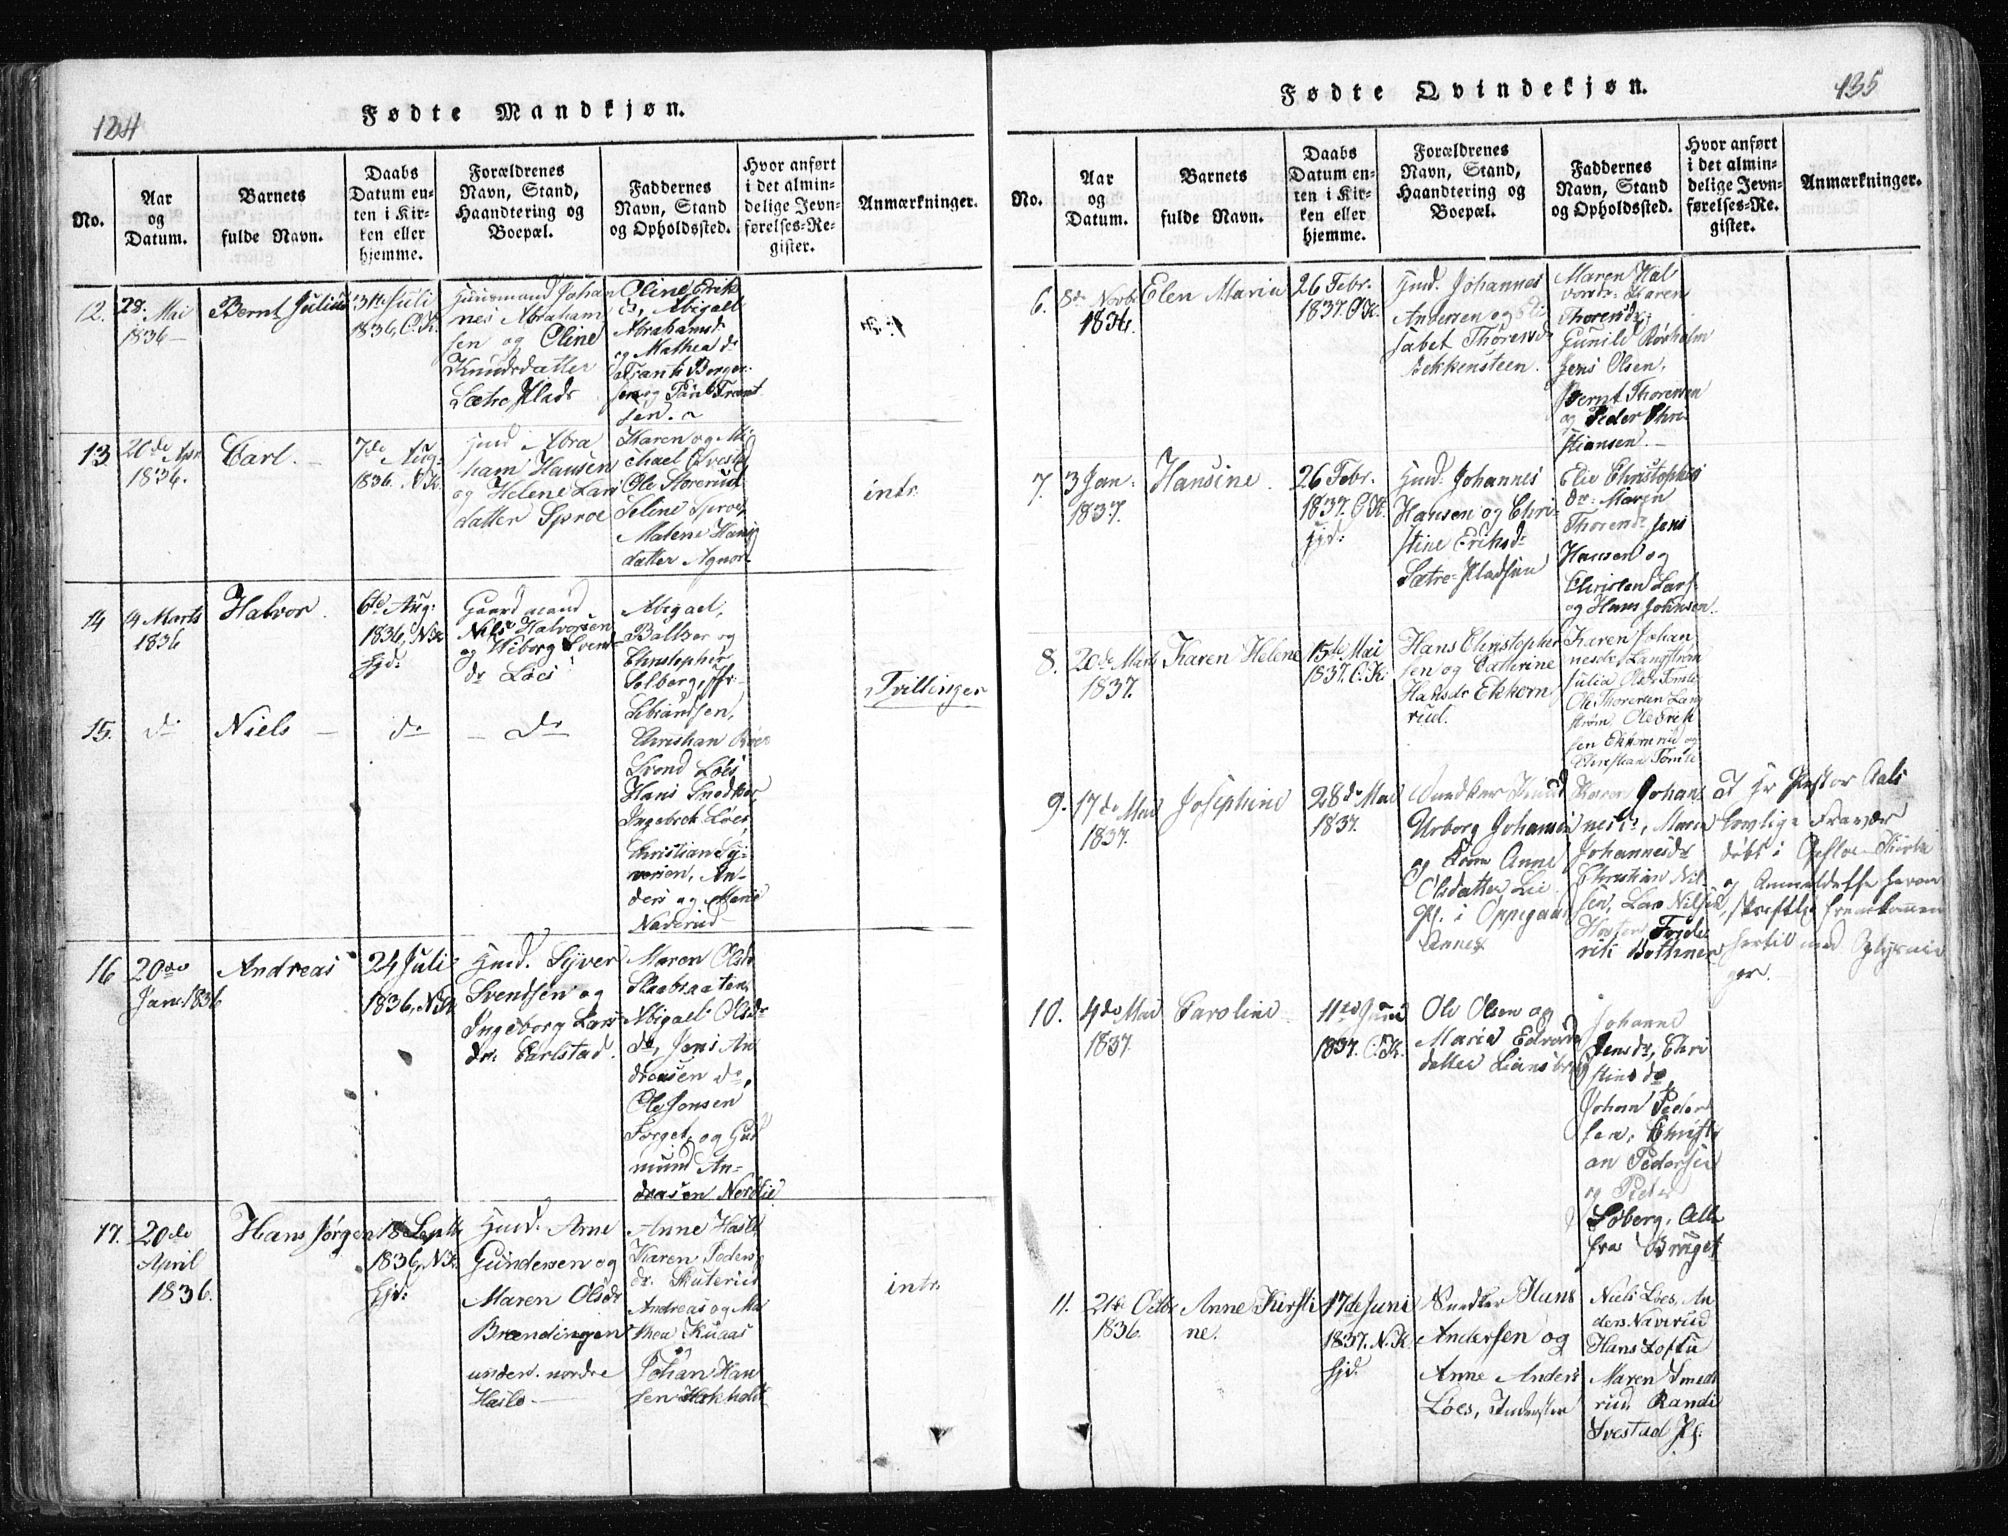 134
Fødte Mandkjøn.
No.
Aar
og
Datum.
Barnets
fulde Navn.
Daabs
Datum en-
ten i Kir-
ken eller
hjemme.
Forældrenes
Navn, Stand,
Haandtering og
Boepæl.
Faddernes
Navn, Stand
og Opholdssted.
Hvor anført
i det almin-
delige Jevn-
førelses-Re-
gister.
Anmærkninger.
12.
28. Mai
1836
Bernt Julius
Juli
1836, C.K.
Huusmand Johan
nes Abraham
sen og Oline
Knudsdatter
Sætre Plads
Oline Erik
Abigael
Abrahamsd.
og Mathea
sen.
13
20de Apr.
1836.
Carl.
7de Aug.
1836. N.K.
Abra
ham Hansen
og Helene Lars
datter Sproe
Karen og Mi
chael
Ole Storerud
Seline Sproe
Malene Hans
datter Agnor
intr.
14
14 Marts
1836
Halvor.
6te Aug:
1836, N.K.
hjd:
Gaardmand
Niels Halvorsen
og Wiborg Svend
dr Løes
Abigael,
Baltzer og
Christopher
Solberg,
Christian
Svend Løes
Hans Snedker
Ingebret Løes
Christian Sy-
versen, An-
ders og Marie
Naverud
Tvillinger
15.
do
Niels
do
do
16
20de
Jan. 1836
Andreas
24 Juli
1836, N.K.
Huusd. Syver
Svendsen og
Ingeborg Lars
dr. Carlstad.
Maren Olsdr
Abigael Olsdr
do, Jens An
dreasen do,
Ole Jonsen
Torget, og Gud
mund An-
dreasen Nordlie
17.
20de
April
1836.
Hans Jørgen
18 Septb
1836, N.K.
hjd:
Huusd. Arne
Gundersen og
Maren Olsdr
Brændingen
under nordre
Hasle
Anne Hasle
Karen Peders
dr. Skuterud
Andreas og Ma
thea Knaas
Johan Han
sen
intr.
135
Fødte Qvindekjøn.
No.
Aar
og
Datum.
Barnets
fulde Navn.
Daabs
Datum en-
ten i Kir-
ken eller
hjemme.
Forældrenes
Navn, Stand,
Haandtering og
Boepæl.
Faddernes
Navn, Stand
og Opholdssted.
Hvor anført
i det almin-
delige Jevn-
førelses-Re-
gister.
Anmærkninger.
6.
8de Novbr
1836.
Elen Maria
26 Febr.
1837. C.K.
Huusd. Johannes
Andersen og Eli
sabet Thoresdr
Ekkensteen.
Maren Hal
vorsdr. Karen
Thoresdr.
Gunild Rørholm
Jens Olsen,
Bernt Thoresen
og Peder Chri
stiansen
7.
3 Jan.
1837.
Hansine.
26 Febr.
1837. C.K.
hjd:
Huusd. Johannes
Hansen og Chri-
stine Eriksdr
Sætre-Pladsen
Elie Christophers
dr. Maren
Thoresdr. Jens
Hansen og
Christen Lars
og Hans Johnsen.
8.
20de Marts
1837.
Karen Helene
15de Mai
1837. C.K.
Hans Christopher
sen og Cathrine
Hansdr Ekkorn
rud.
Karen Johan
nesdr Langstrøm
Julia
Ole Thoresen Lang
strøm, Ole Erik
sen Ekkornrud og
Christian Tomte
9.
17de Mai
1837.
Josephine
28de Mai
1837.
Snedker Knud
Urborg Johansen
og Kone Anne
Olsdatter Lie
Pl. i Oppegaard
Annex
Karen Johan
nesdr, Maren
Johannesdr
Christian Nil-
sen, Lars Nilsen
Frede
rik Bothner
at Hr Pastor Aals
lovlige Fravær
døbt i Opsloe Kirke
og Anmeldelse herom
skriftlig fremkommen
hertil med Oplysnin
ger.
10.
4de Mai
1837.
Caroline
11te Juni
1837. C.K.
Ole Olsen og
Maria Edvards
datter
Johanne
Jensdr, Chri
stine do
Johan Peder
sen, Christi
an Pedersen
og Peder
Soberg, Alle
fra Bruget
11.
21de Octbr
1836.
Anne Kirsti
ne.
17de Juni
1837. N.K.
hjd:
Snedker Hans
Andersen og
Anne Anders
Løes, Inderster
Niels Løes, An
ders Naverud
Hans Toftu
Maren Smed
rud Randi
Svestad Pl.